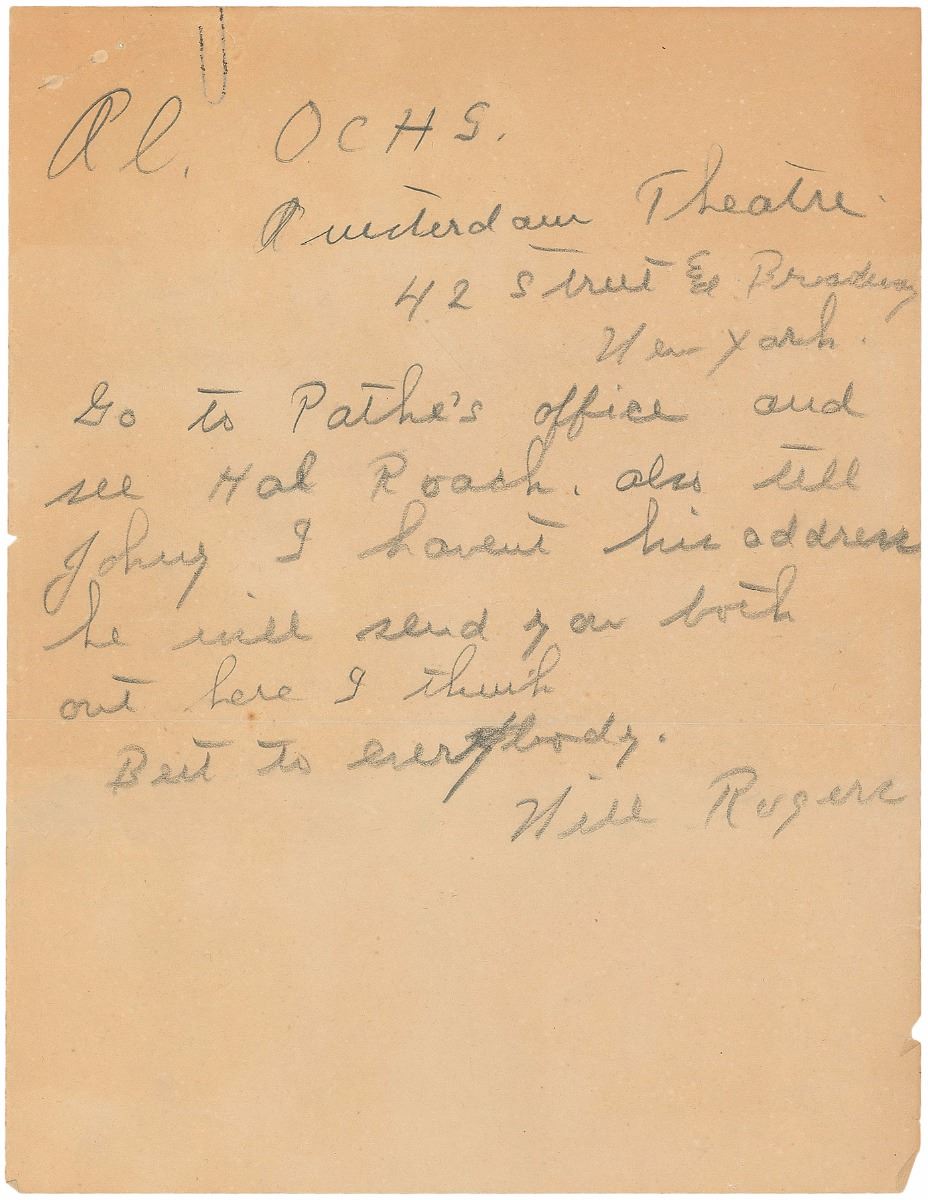 Al. OCHS.
Amsterdam Theatre.
42 Street & Broadway
New York.
Go to Pathe's office and
see Hal Roach. also tell
Johny I havent his address
he will send you both
out here I think
Best to everybody.
Will Rogers